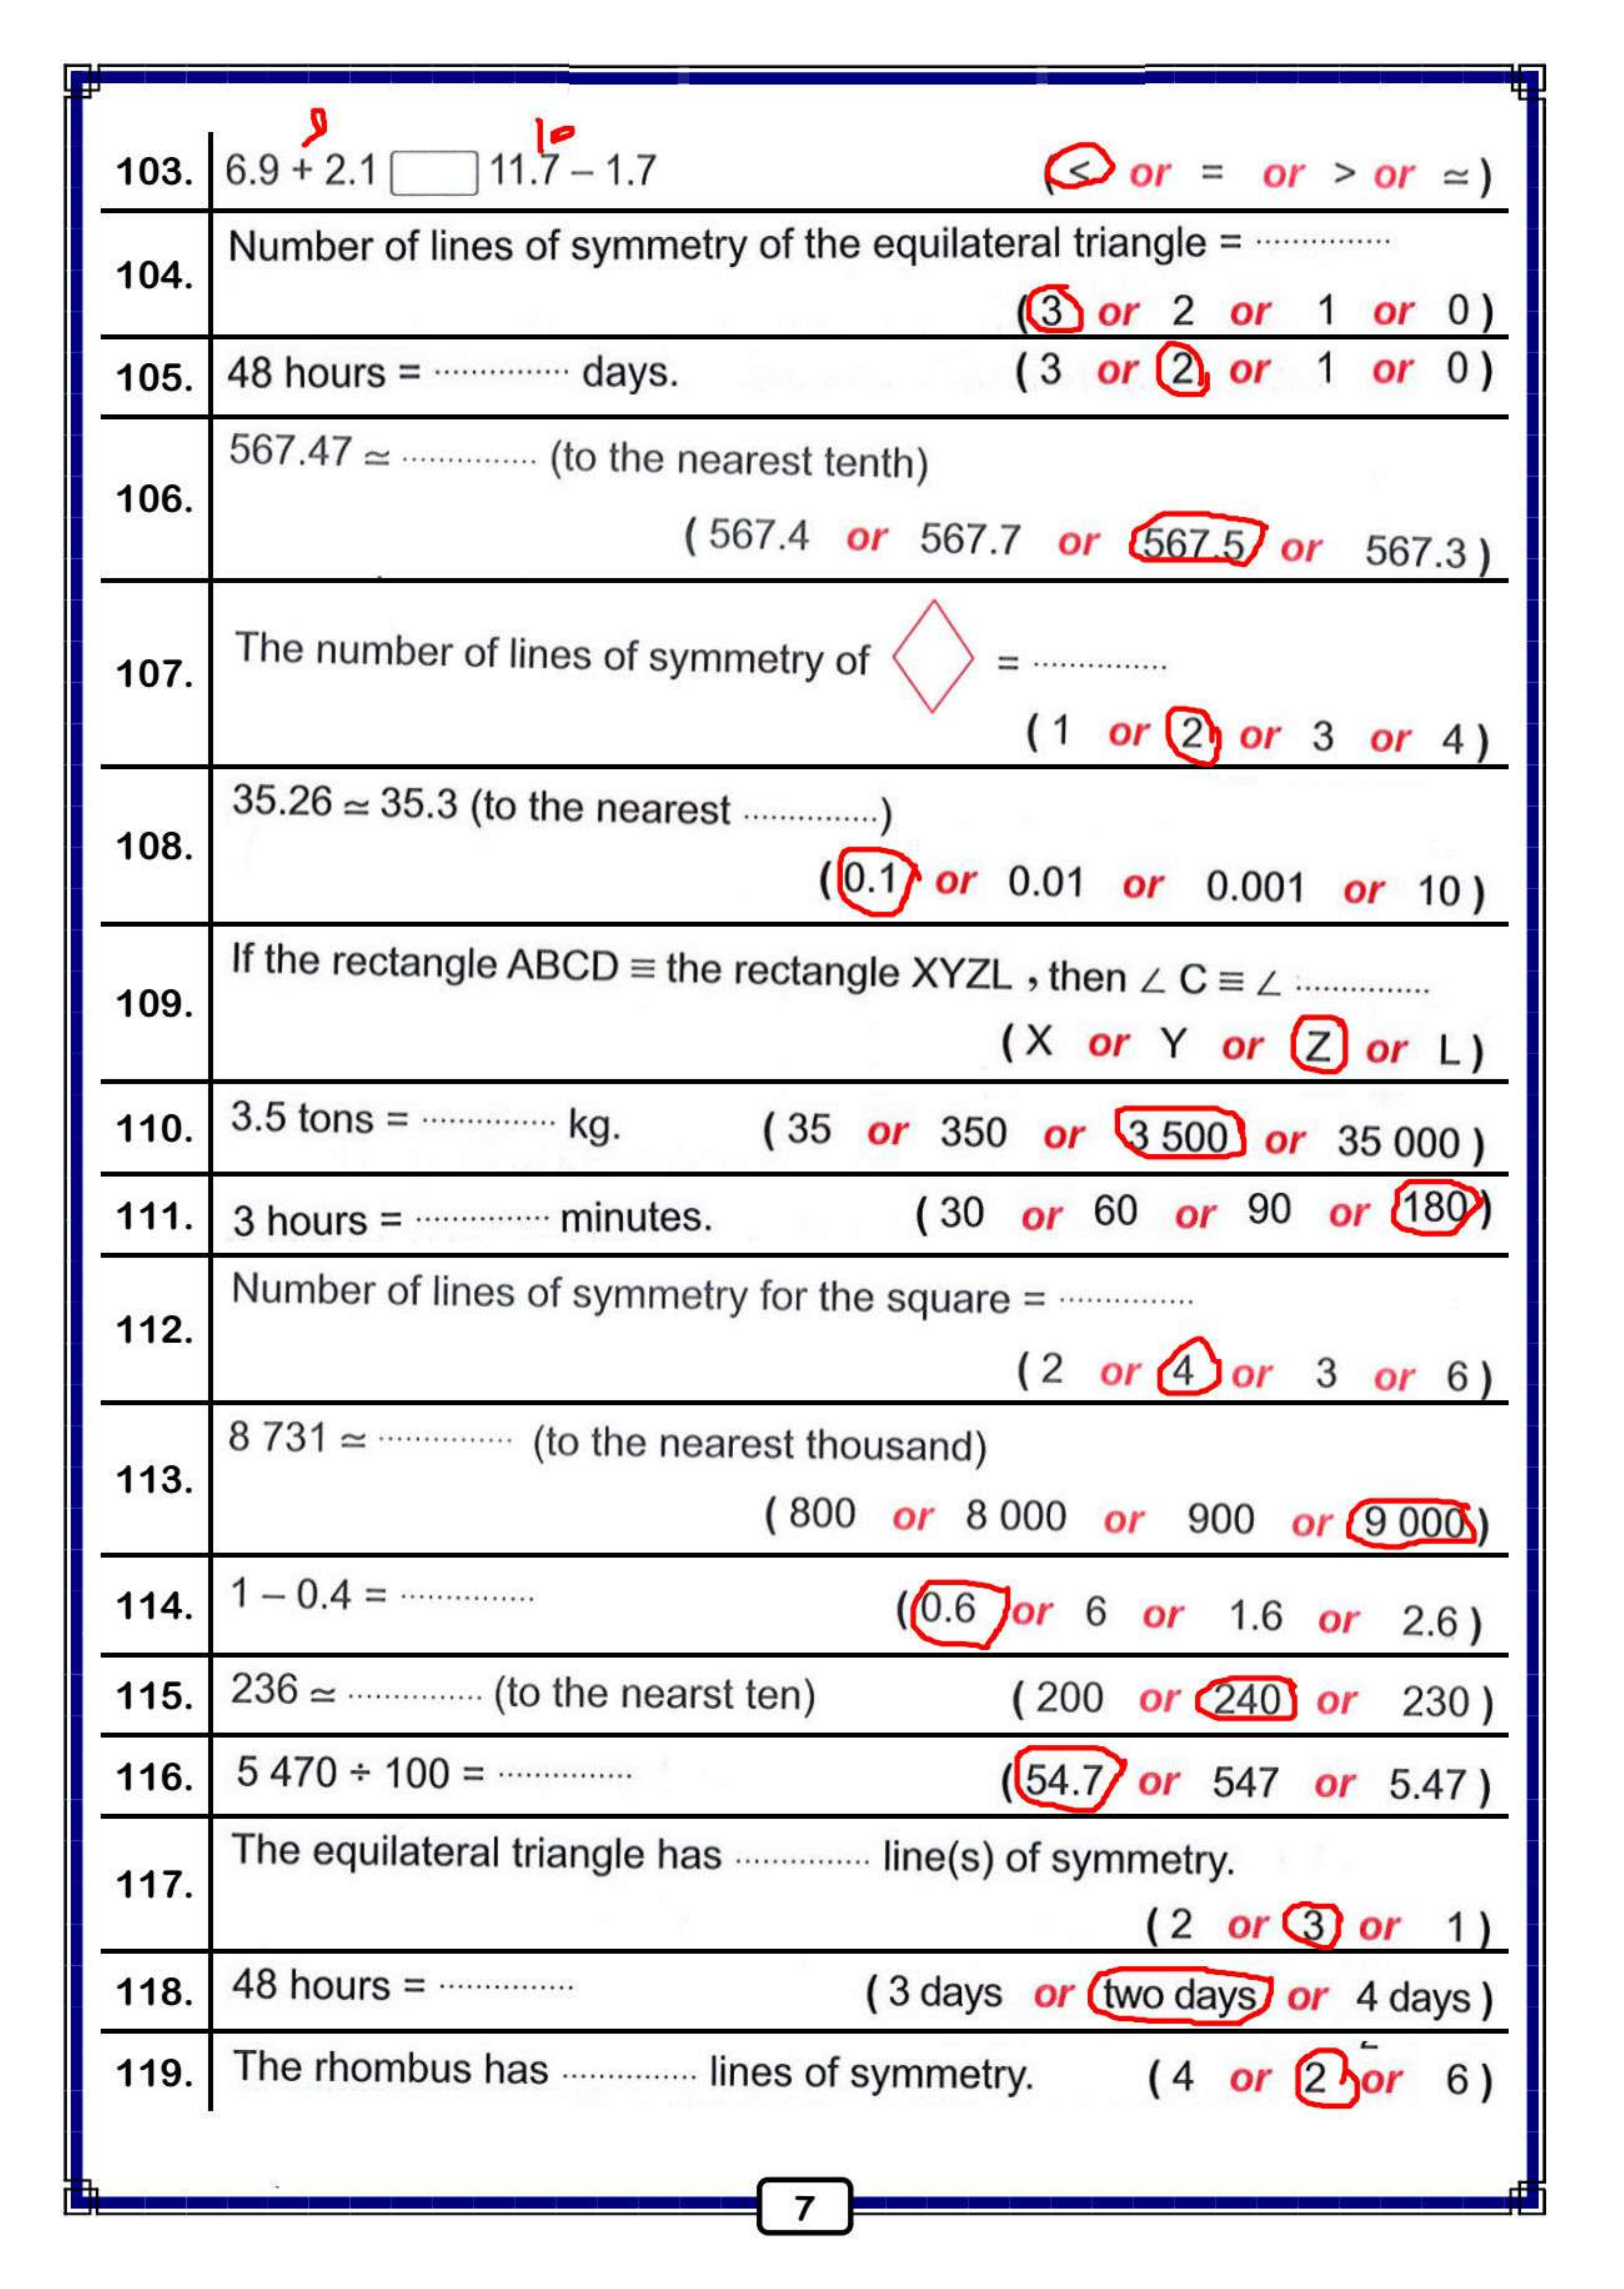 9 10
103. 6.9 + 2.1 11.7 – 1.7 ( < or = or > or ≃ )
104. Number of lines of symmetry of the equilateral triangle = ...............
( 3 or 2 or 1 or 0 )
105. 48 hours = ............... days. ( 3 or 2 or 1 or 0 )
106. 567.47 ≃ ............... (to the nearest tenth)
( 567.4 or 567.7 or 567.5 or 567.3 )
107. The number of lines of symmetry of = ...............
( 1 or 2 or 3 or 4 )
108. 35.26 ≃ 35.3 (to the nearest ...............)
( 0.1 or 0.01 or 0.001 or 10 )
109. If the rectangle ABCD ≡ the rectangle XYZL , then ∠ C ≡ ∠ ...............
( X or Y or Z or L )
110. 3.5 tons = ............... kg. ( 35 or 350 or 3 500 or 35 000 )
111. 3 hours = ............... minutes. ( 30 or 60 or 90 or 180 )
112. Number of lines of symmetry for the square = ...............
( 2 or 4 or 3 or 6 )
113. 8 731 ≃ ............... (to the nearest thousand)
( 800 or 8 000 or 900 or 9 000 )
114. 1 – 0.4 = ............... ( 0.6 or 6 or 1.6 or 2.6 )
115. 236 ≃ ............... (to the nearst ten) ( 200 or 240 or 230 )
116. 5 470 ÷ 100 = ............... ( 54.7 or 547 or 5.47 )
117. The equilateral triangle has ............... line(s) of symmetry.
( 2 or 3 or 1 )
118. 48 hours = ............... ( 3 days or two days or 4 days )
119. The rhombus has ............... lines of symmetry. ( 4 or 2 or 6 )
7